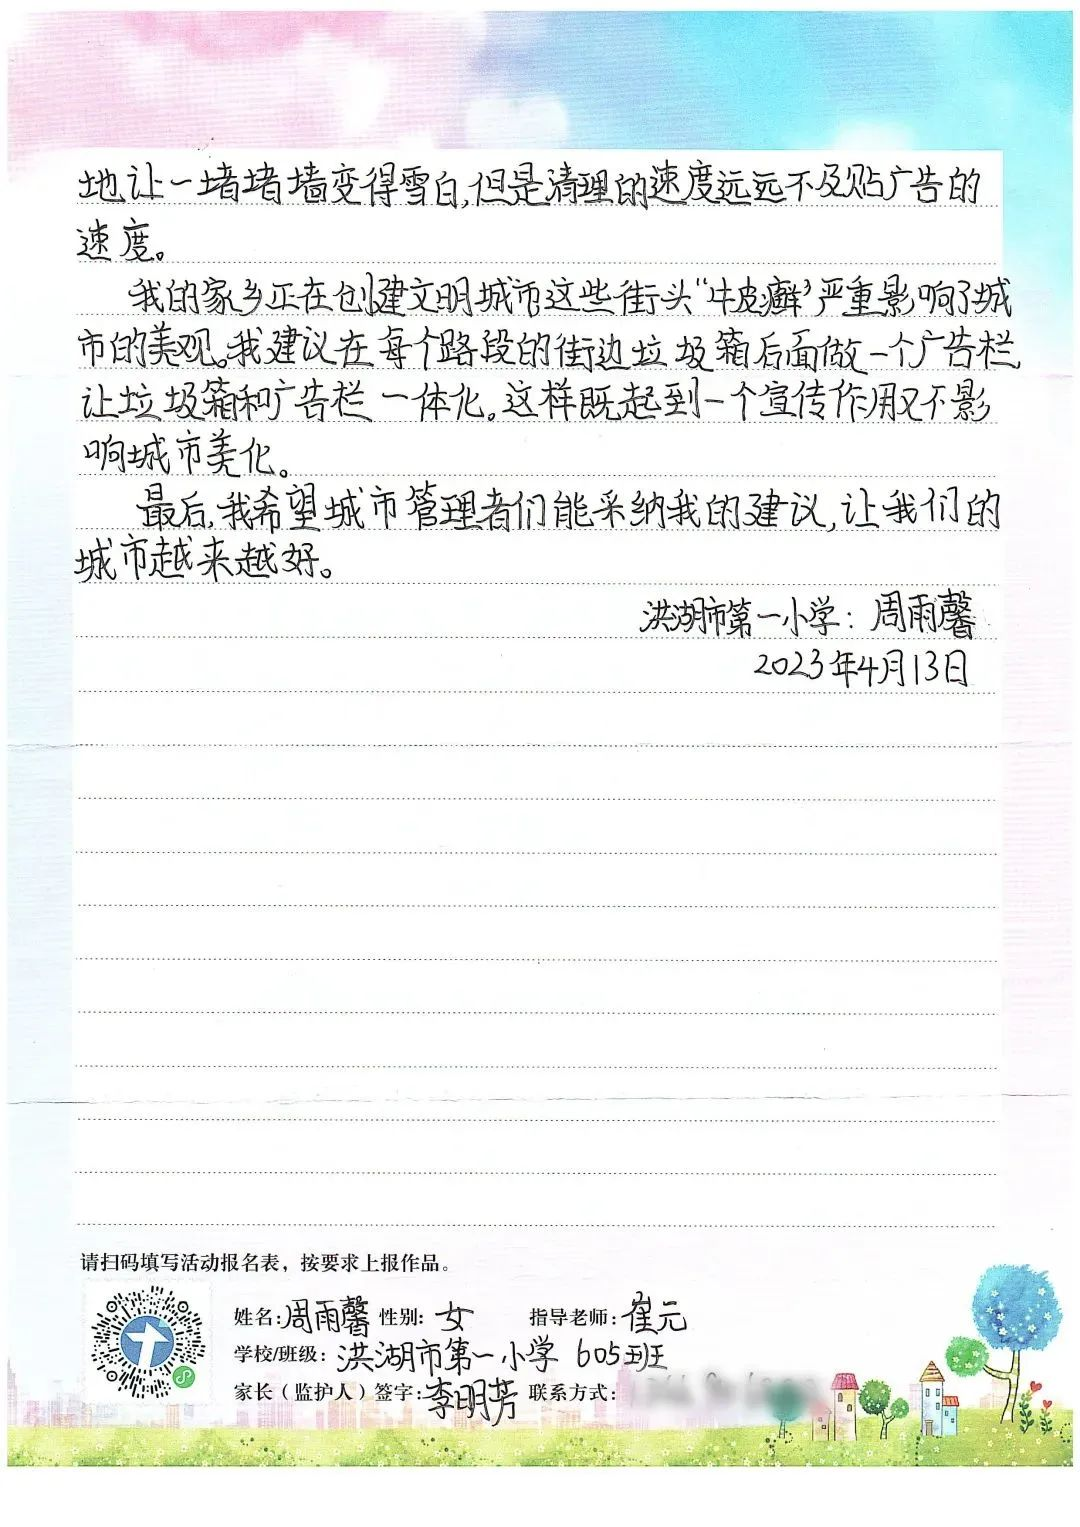 地让一堵堵墙变得雪白,但是清理的速度远远不及贴广告的
速度。
我的家乡正在创建文明城市这些街头“牛皮癣”严重影响了城
市的美观。我建议在每个路段的街边垃圾箱后面做一个广告栏,
让垃圾箱和广告栏一体化。这样既起到一个宣传作用又不影
响城市美化。
最后,我希望城市管理者们能采纳我的建议,让我们的
城市越来越好。
洪湖市第一小学:周雨馨
2023年4月13日
请扫码填写活动报名表,按要求上报作品。
姓名:周雨馨 性别:女 指导老师:崔元
学校/班级:洪湖市第一小学 605班
家长(监护人)签字:李明芳 联系方式: